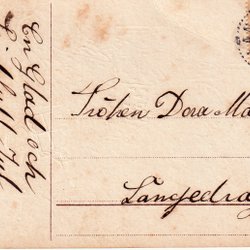 En Glad och
Fröken Dora Ma
Långedra